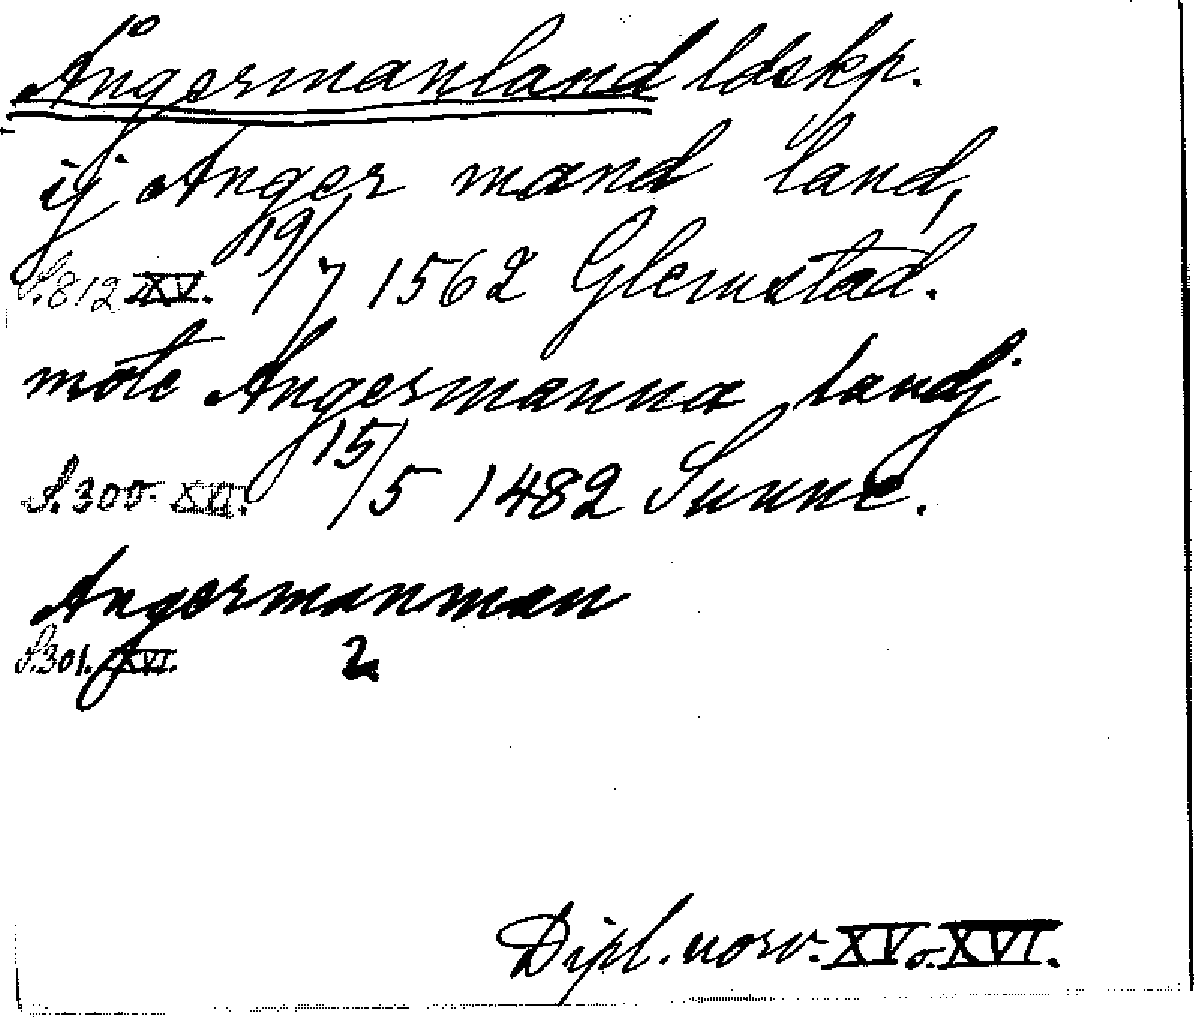 Ångermanland ldskp.
ij Anger mand land,
S. 812 XV. 19/7 1562 Glemstad.
mote Angermanna landj
S. 300 XVI. 15/5 1482 Sunne.
Angermanman
S. 301. XVI. 2
Dipl. norv. XV o. XVI.